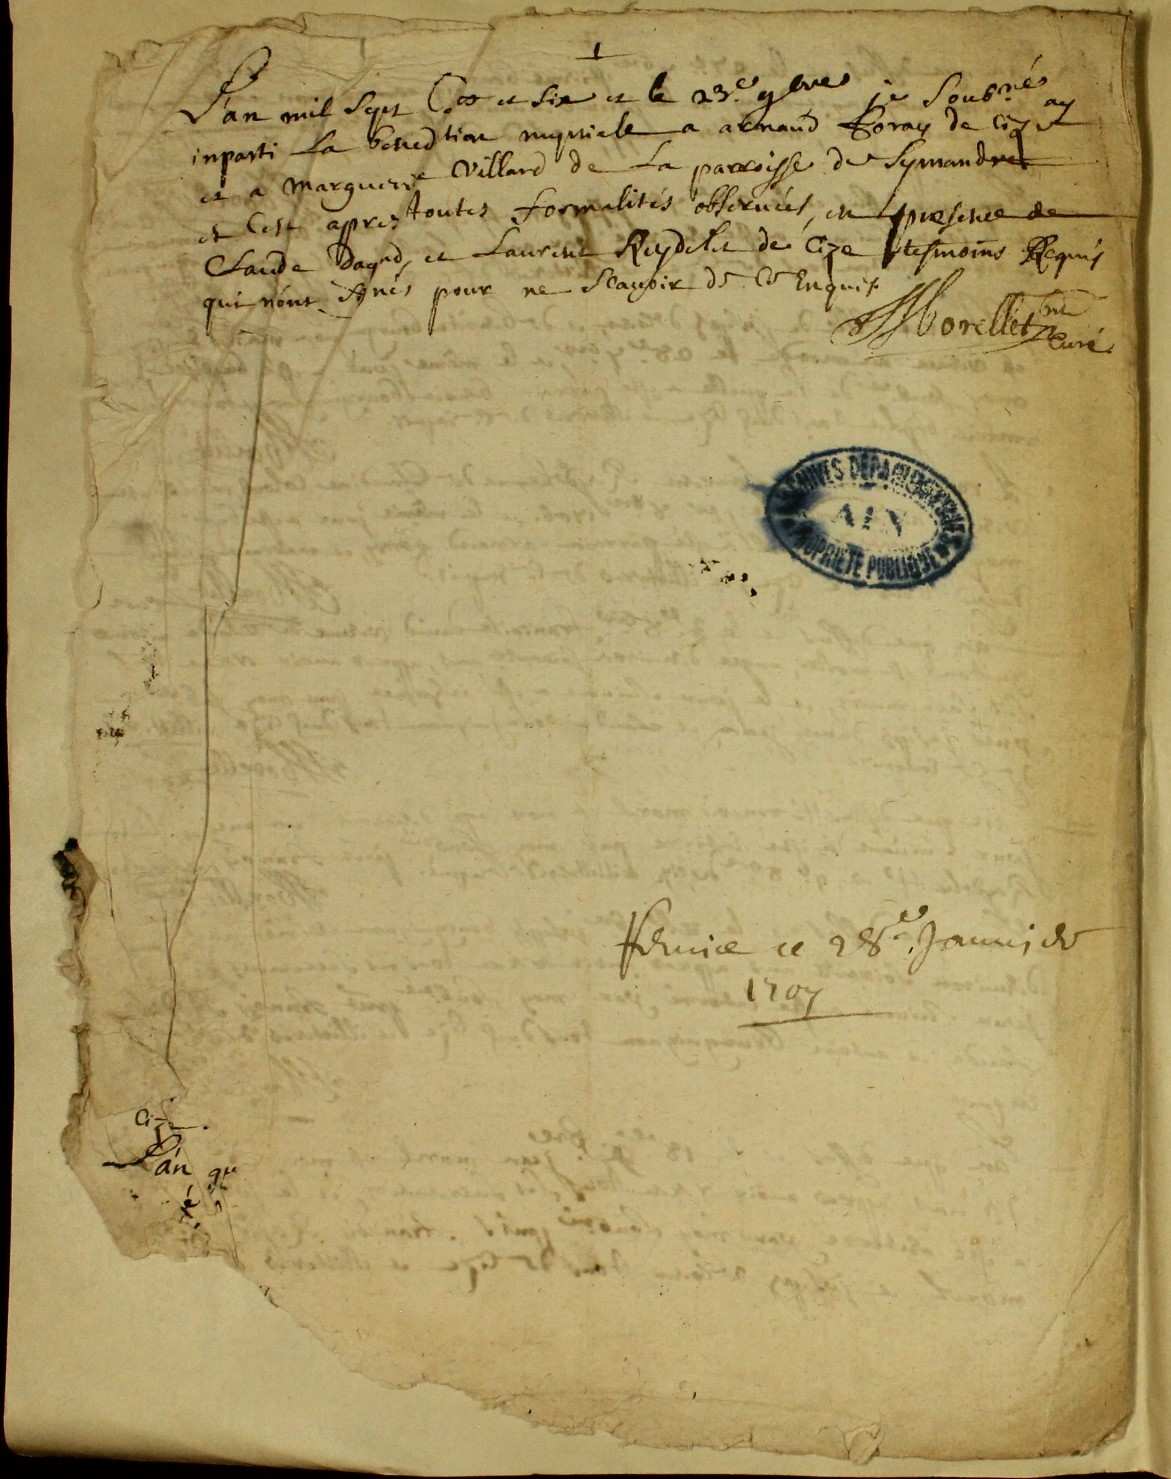 1
L'an mil sept Cents et six et le 23e 9bre je soubsné ay
inparti La benediction nuptiale a arnaud foray de Cize
et a Marguerite Villard de La parroisse de Symandre
et Cest apres toutes formalités observées, en presence de
Claude et Laurent Reydelet de Cize tesmoins Requis
qui n'ont signés pour ne scavoir de Ce Enquis.
Morellet
Curé
ARCHIVES DÉPARTEMENTALES
AIN
PROPRIÉTÉ PUBLIQUE
ce 28e Janvier
1707
Cize.
L'an